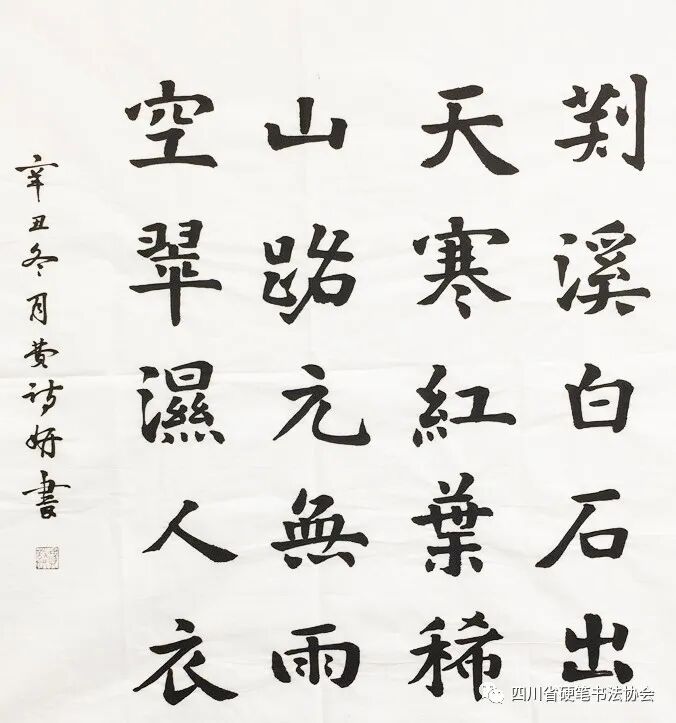 荆溪白石出
天寒紅葉稀
山路元無雨
空翠濕人衣
辛丑冬月費詩妍書
四川省硬笔书法协会